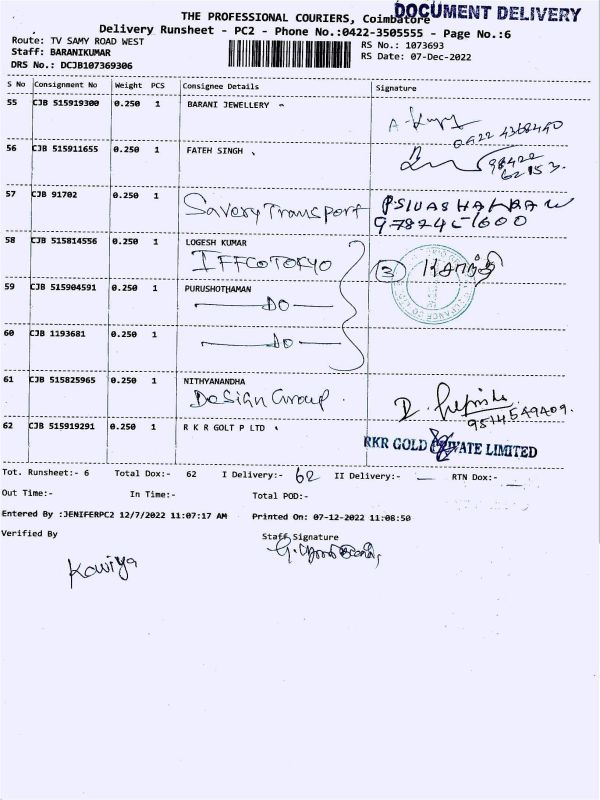 THE PROFESSIONAL COURIERS, Coimbatore
DOCUMENT DELIVERY
Delivery Runsheet - PC2 - Phone No.:0422-3505555 - Page No.:6
Route: TV SAMY ROAD WEST
RS No.: 1073693
Staff: BARANIKUMAR
RS Date: 07-Dec-2022
DRS No.: DCJB107369306
S No Consignment No Weight PCS Consignee Details Signature
55 CJB 515919300 0.250 1 BARANI JEWELLERY
0422 4368490
56 CJB 515911655 0.250 1 FATEH SINGH
98422
62153
57 CJB 91702 0.250 1 Savery Transport
58 CJB 515814556 0.250 1 LOGESH KUMAR
IFFCO TOKYO
3
59 CJB 515904591 0.250 1 PURUSHOTHAMAN
DO
60 CJB 1193681 0.250 1
DO
61 CJB 515825965 0.250 1 NITHYANANDHA
Design Group.
9514549409.
62 CJB 515919291 0.250 1 R K R GOLT P LTD
RKR GOLD PRIVATE LIMITED
Tot. Runsheet:- 6 Total Dox:- 62 I Delivery:- 62 II Delivery:- — RTN Dox:- —
Out Time:- In Time:- Total POD:-
Entered By :JENIFERPC2 12/7/2022 11:07:17 AM Printed On: 07-12-2022 11:08:50
Verified By Staff Signature
Kawiya